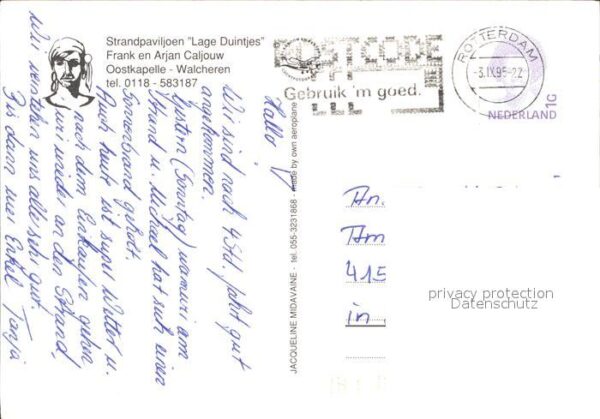 Strandpaviljoen "Lage Duintjes"
Frank en Arjan Caljouw
Oostkapelle - Walcheren
tel. 0118 - 583187
POSTCODE
Gebruik 'm goed.
ROTTERDAM
-3.IX.95-22
1G
NEDERLAND
Hallo
Wir sind nach 4 Std. Fahrt gut
angekommen.
Gestern (Sonntag) waren wir am
Strand u. Michael hat sich einen
Sonnenbrand geholt.
Auch heut ist super Wetter u.
nach dem Einkaufen gehen
wir wieder an den Strand,
Wir uns alle sehr gut.
Bis dann euer Enkel Tanja
JACQUELINE MIDAVAINE - tel. 055-3231868 - made by own aeroplane
An.
41E
in
privacy protection
Datenschutz